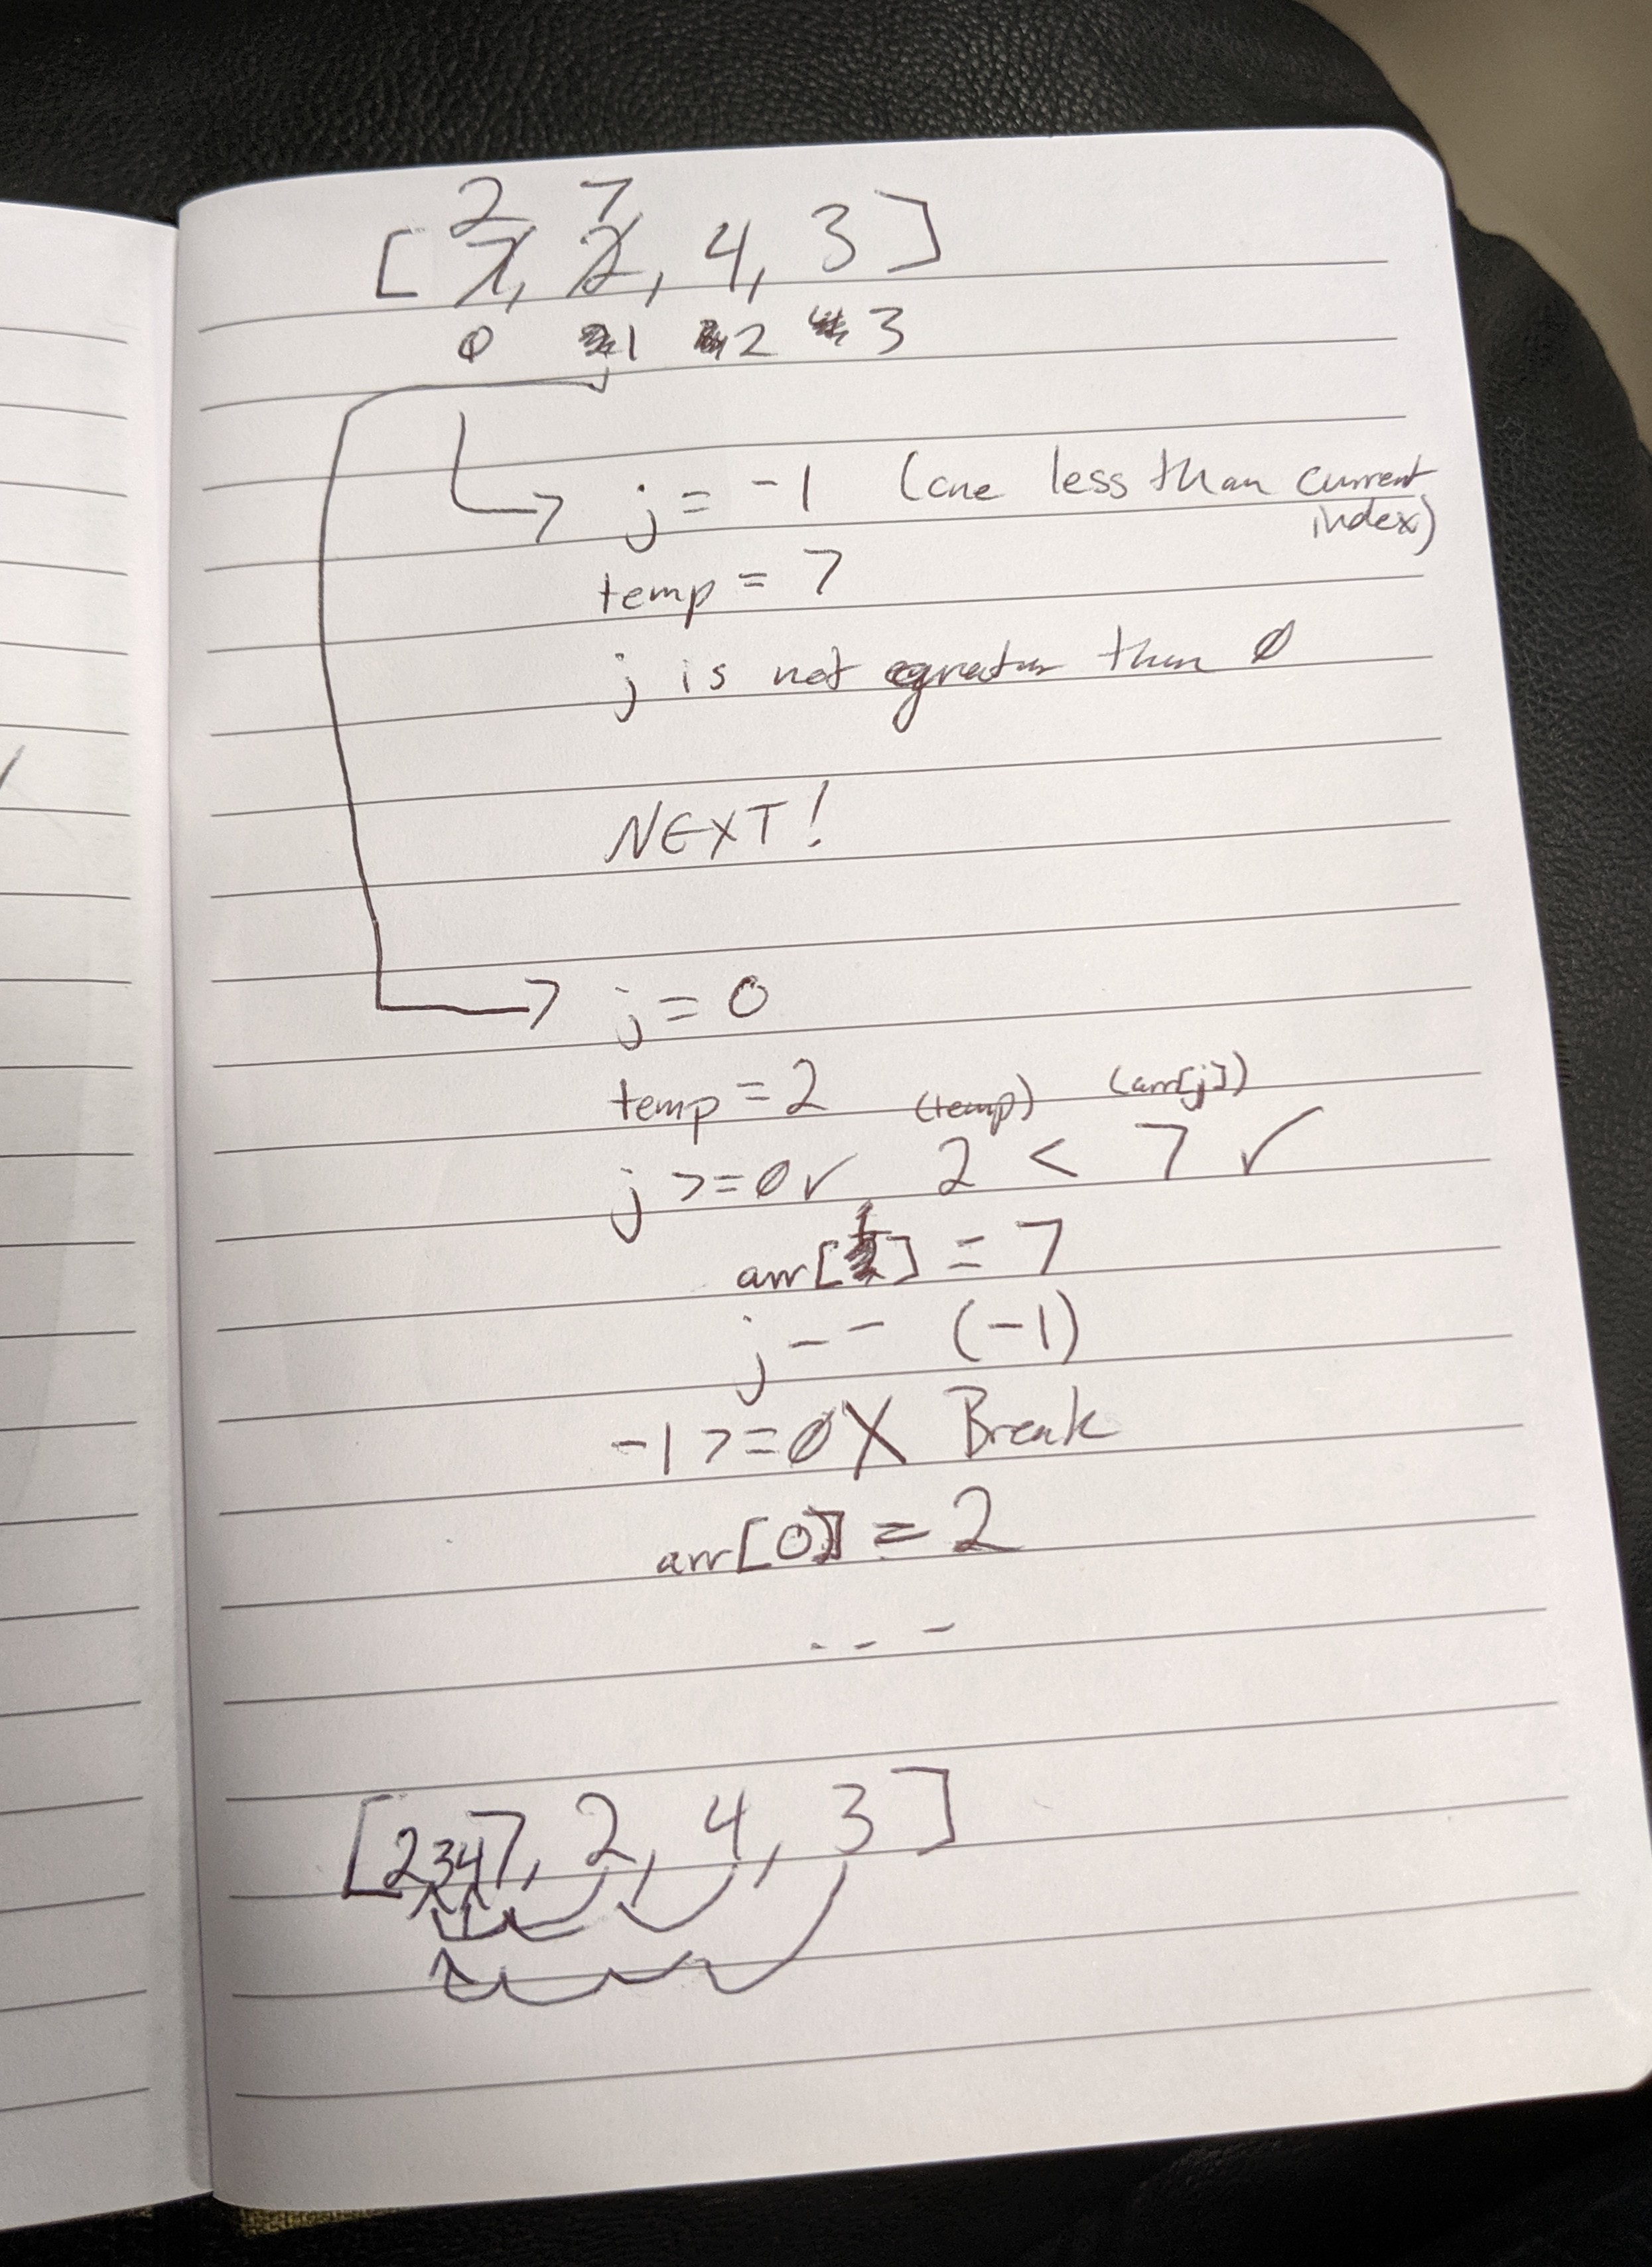 2 7
[7, 2, 4, 3]
0 1 2 3
j = -1 (one less than current
index)
temp = 7
j is not greater than 0
NEXT!
j = 0
temp = 2 (temp) (arr[j])
j >= 0 ✓ 2 < 7 ✓
arr[1] = 7
j -- (-1)
-1 >= 0 X Break
arr[0] = 2
...
[2 3 4 7, 2, 4, 3]